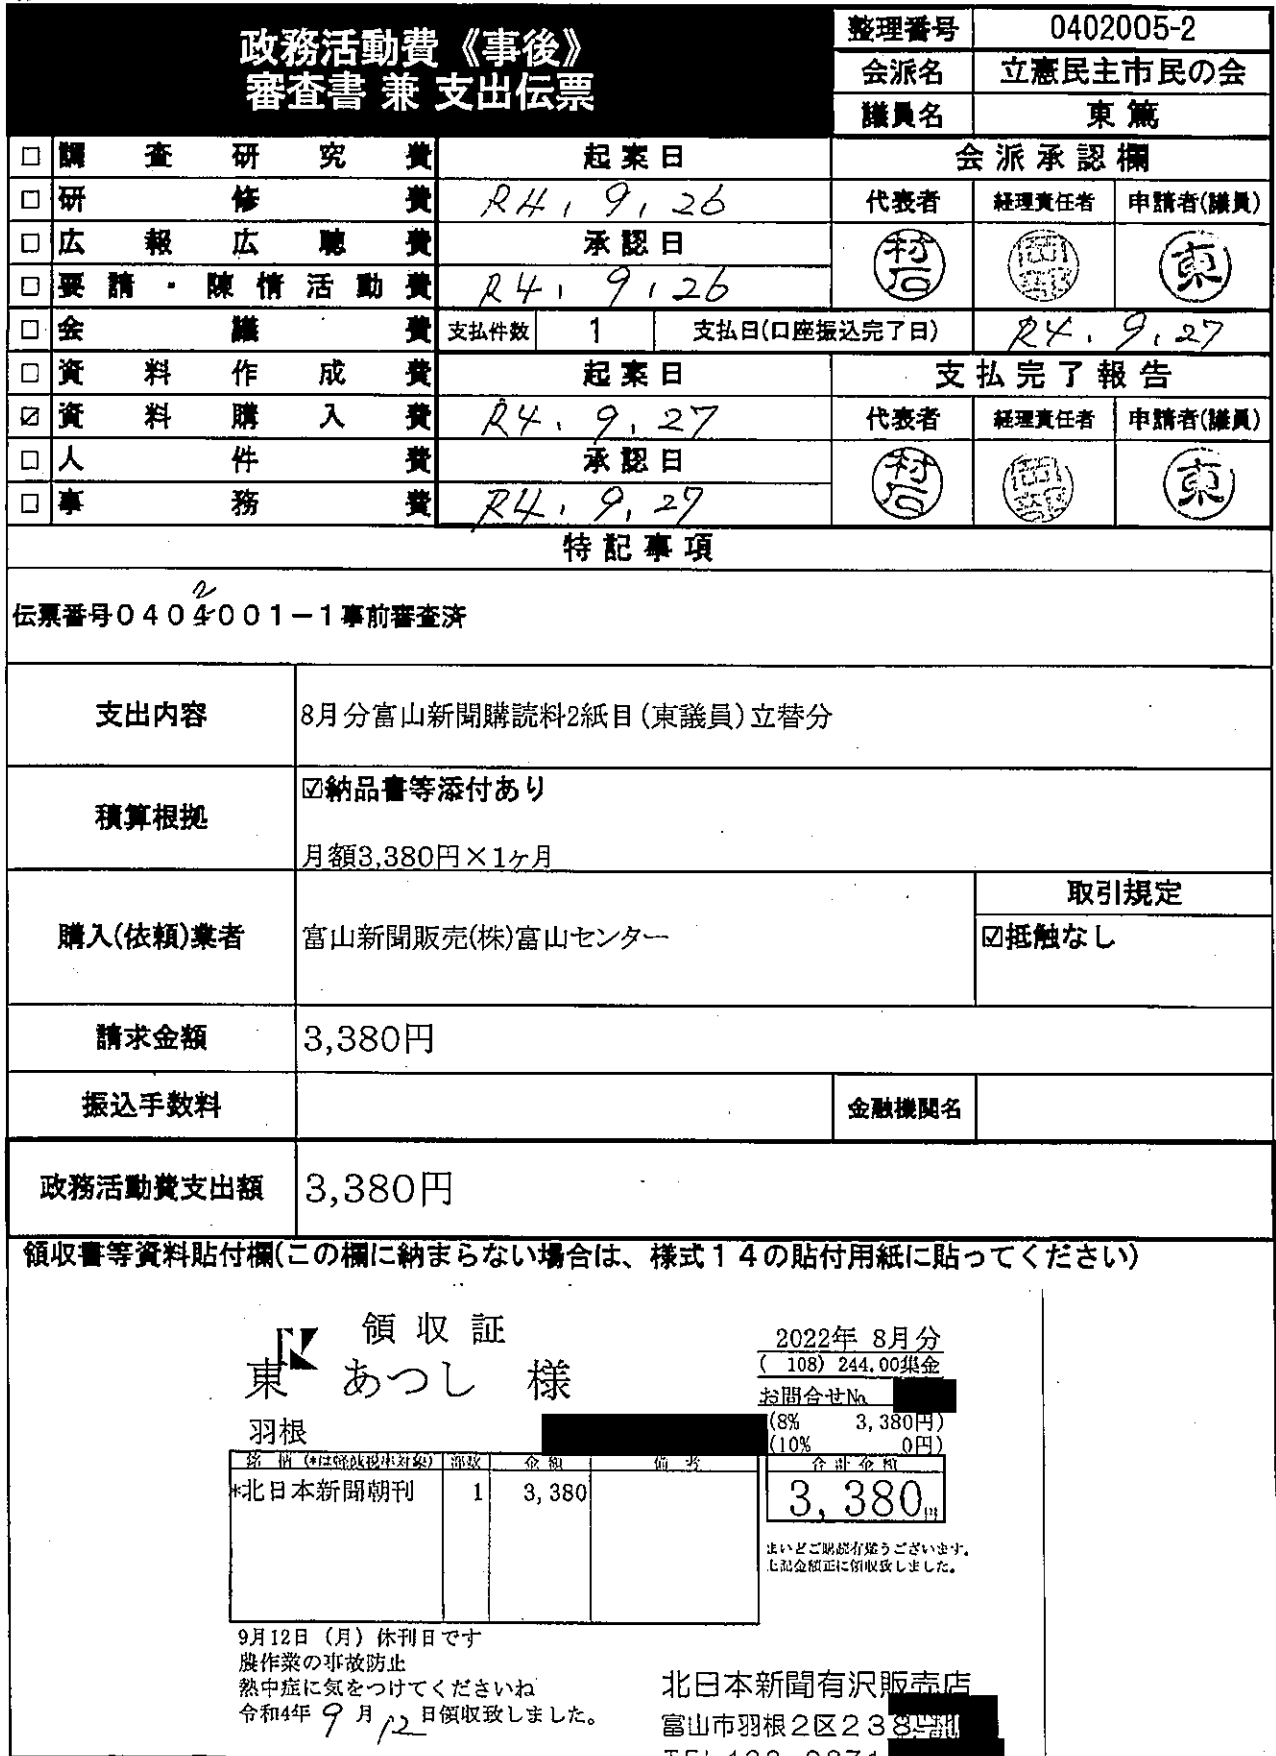 政務活動費《事後》
審査書 兼 支出伝票
整理番号 0402005-2
会派名 立憲民主市民の会
議員名 東 篤
□ 調査研究費 起案日 会派承認欄
□ 研修費 R4.9.26 代表者 経理責任者 申請者(議員)
□ 広報広聴費 承認日 東
□ 要請・陳情活動費 R4.9.26
□ 会議費 支払件数 1 支払日(口座振込完了日) R4.9.27
□ 資料作成費 起案日 支払完了報告
☑ 資料購入費 R4.9.27 代表者 経理責任者 申請者(議員)
□ 人件費 承認日 東
□ 事務費 R4.9.27
特記事項
2
伝票番号0404001-1事前審査済
支出内容 8月分富山新聞購読料2紙目(東議員)立替分
積算根拠 ☑納品書等添付あり
月額3,380円×1ヶ月
購入(依頼)業者 富山新聞販売(株)富山センター
取引規定
☑抵触なし
請求金額 3,380円
振込手数料 金融機関名
政務活動費支出額 3,380円
領収書等資料貼付欄(この欄に納まらない場合は、様式14の貼付用紙に貼ってください)
領収証
東 あつし 様
羽根
2022年 8月分
( 108) 244.00集金
お問合せNo.
(8% 3,380円)
(10% 0円)
銘柄(*は軽減税率対象) 部数 金額 備考 合計金額
*北日本新聞朝刊 1 3,380
3,380円
まいどご購読有難うございます。
上記金額正に領収致しました。
9月12日(月)休刊日です
農作業の事故防止
熱中症に気をつけてくださいね
令和4年 9月12日領収致しました。
北日本新聞有沢販売店
富山市羽根2区238